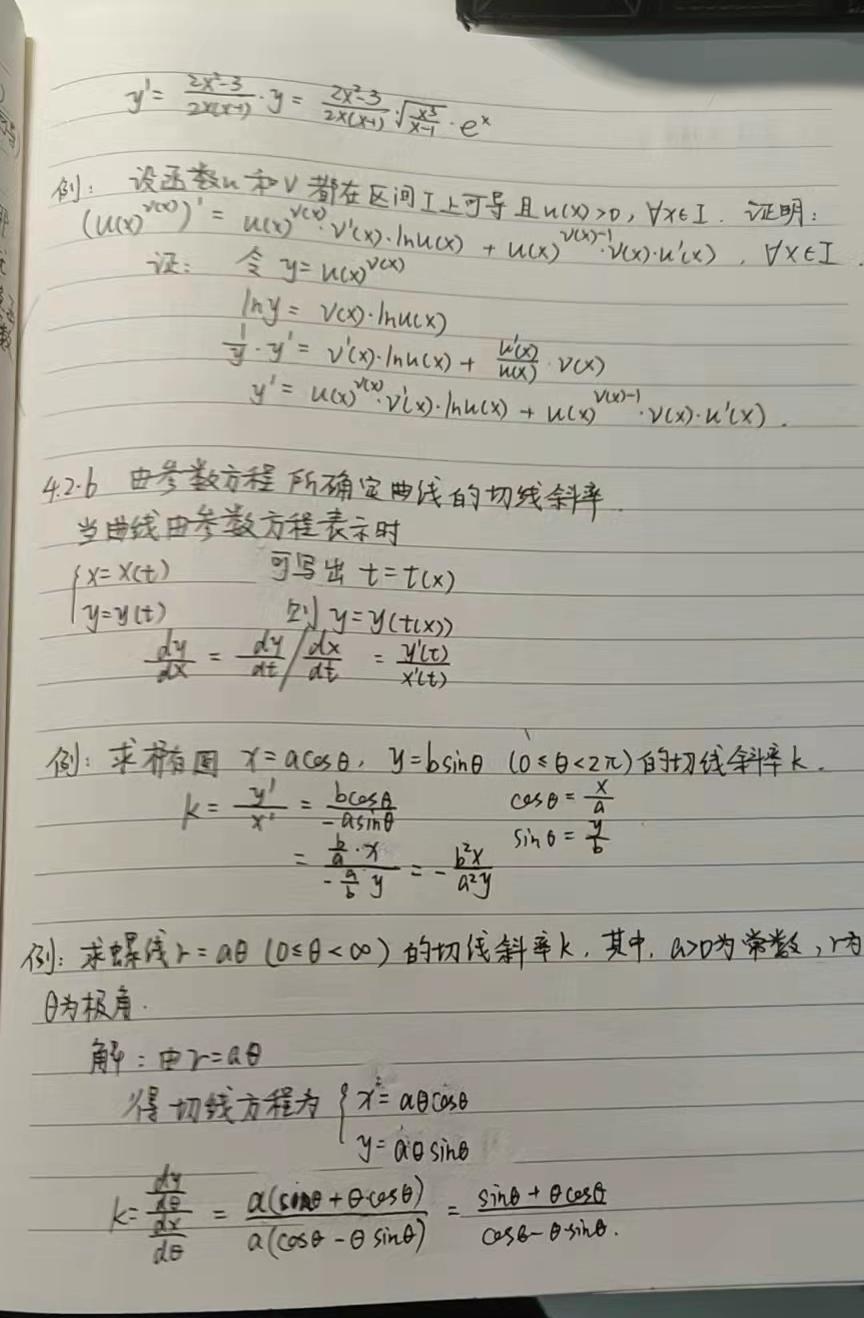 y' = \frac{2x²-3}{2x(x-1)} · y = \frac{2x²-3}{2x(x-1)} · \sqrt{\frac{x³}{x-1}} · e^x
例: 设函数u和v都在区间I上可导且u(x)>0, ∀x∈I. 证明:
(u(x)^{v(x)})' = u(x)^{v(x)}·v'(x)·lnu(x) + u(x)^{v(x)-1}·v(x)·u'(x), ∀x∈I.
证: 令 y = u(x)^{v(x)}
lny = v(x)·lnu(x)
\frac{1}{y}·y' = v'(x)·lnu(x) + \frac{u'(x)}{u(x)}·v(x)
y' = u(x)^{v(x)}·v'(x)·lnu(x) + u(x)^{v(x)-1}·v(x)·u'(x).
4.2.6 由参数方程所确定曲线的切线斜率.
当曲线由参数方程表示时
{x=x(t) 可写出 t=t(x)
y=y(t) 则 y=y(t(x))
\frac{dy}{dx} = \frac{dy}{dt}/\frac{dx}{dt} = \frac{y'(t)}{x'(t)}
例: 求椭圆 x=acosθ, y=bsinθ (0≤θ<2π)的切线斜率k.
k = \frac{y'}{x'} = \frac{bcosθ}{-asinθ} cosθ = \frac{x}{a}
= \frac{\frac{b}{a}·x}{-\frac{a}{b}y} = -\frac{b²x}{a²y} sinθ = \frac{y}{b}
例: 求螺线r=aθ (0≤θ<∞)的切线斜率k, 其中, a>0为常数, r为
θ为极角.
解: 由r=aθ
得切线方程为 {x=aθcosθ
y=aθsinθ
k = \frac{\frac{dy}{dθ}}{\frac{dx}{dθ}} = \frac{a(sinθ+θcosθ)}{a(cosθ-θsinθ)} = \frac{sinθ+θcosθ}{cosθ-θsinθ}.